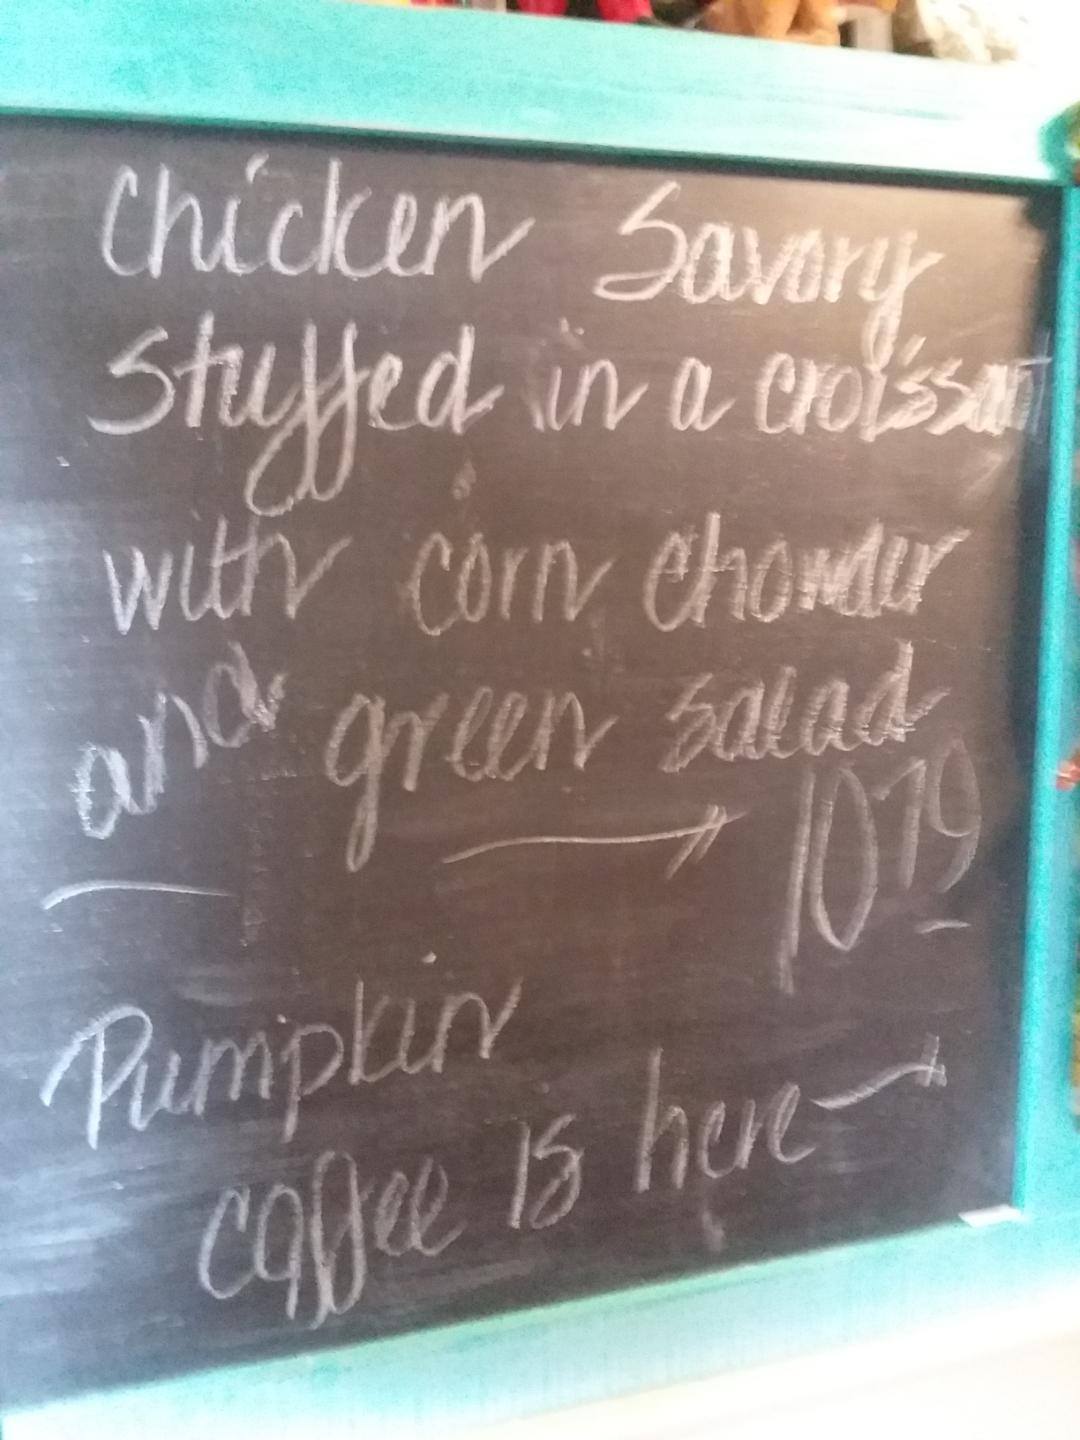 chicken Savory
stuffed in a croissant
with corn chowder
and green salad
10 79
Pumpkin
coffee is here